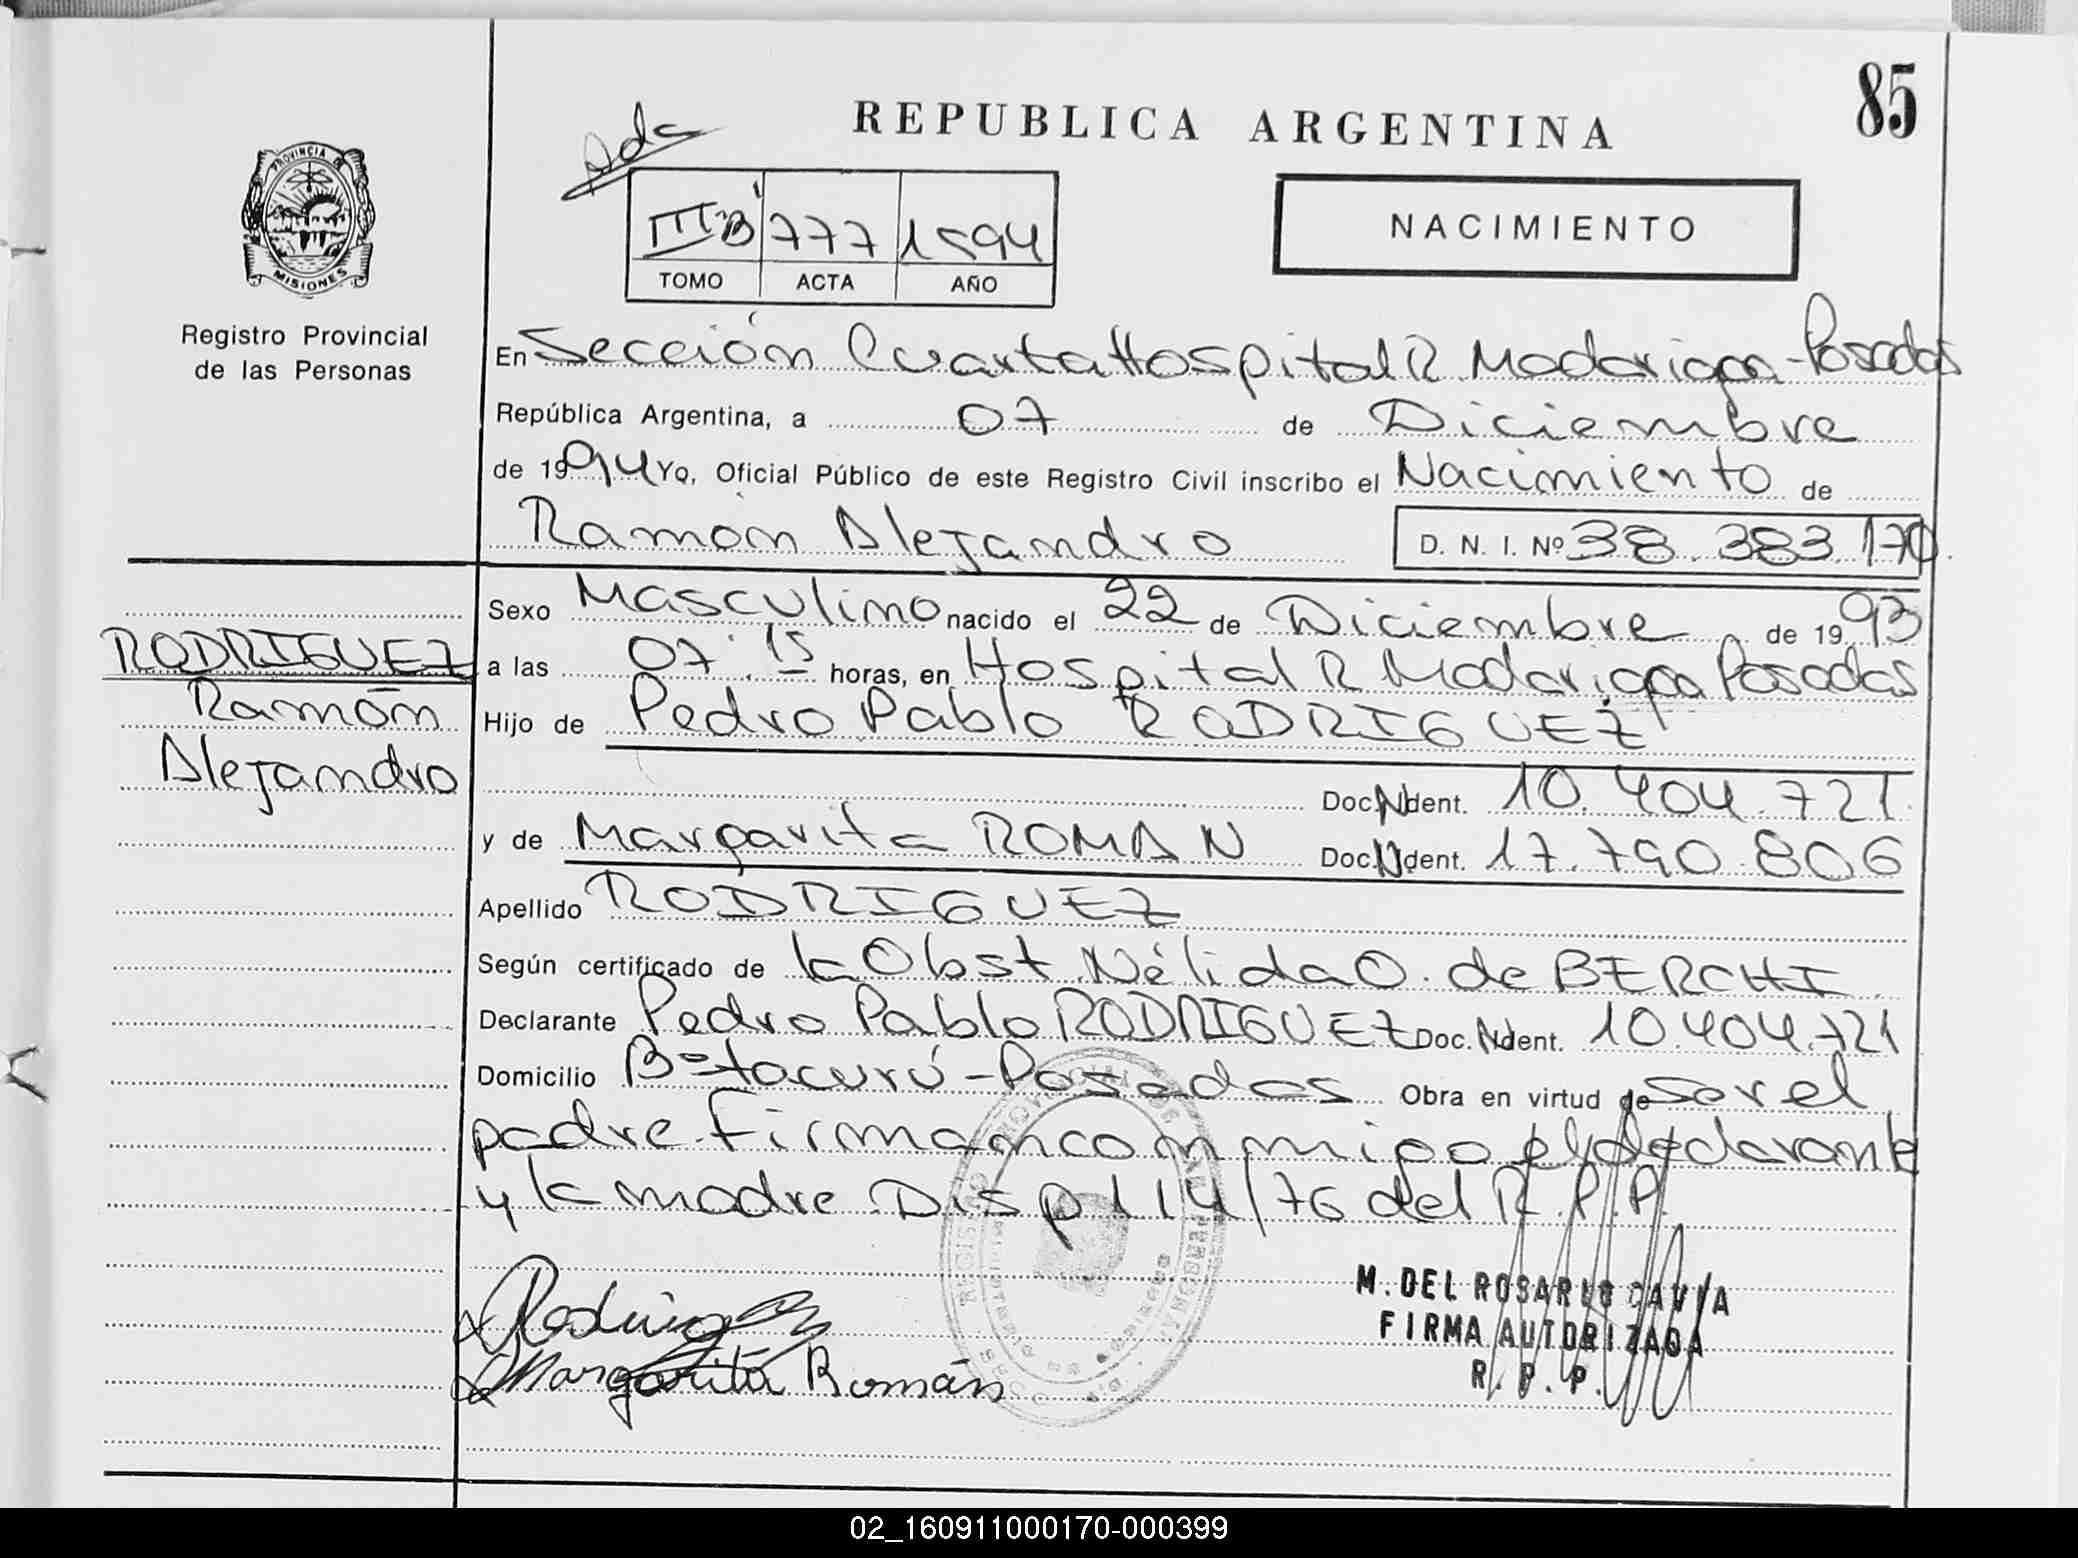 85
REPUBLICA ARGENTINA
Ads
NACIMIENTO
III "B" 777 1994
TOMO ACTA AÑO
PROVINCIA DE
MISIONES
Registro Provincial
de las Personas
En Sección Cuarta Hospital R Madariaga - Posadas
República Argentina, a 07 de Diciembre
de 1994 Yo, Oficial Público de este Registro Civil inscribo el Nacimiento de
Ramón Alejandro D. N. I. Nº 38.383.170.
Sexo Masculino nacido el 22 de Diciembre de 1993
RODRIGUEZ
Ramón
Alejandro
a las 07.15 horas, en Hospital R Madariaga Posadas
Hijo de Pedro Pablo RODRIGUEZ
Doc. Ident. 10.404.721.
y de Margarita ROMAN Doc. Ident. 17.790.806
Apellido RODRIGUEZ
Según certificado de la Obst Nélida O. de BERCHI
Declarante Pedro Pablo RODRIGUEZ Doc. Ident. 10.404.721
Domicilio Bº tacurú - Posadas Obra en virtud de ser el
padre. Firman conmigo el declarante
y la madre Disp 114/76 del R.P.P.
Rodriguez
Margarita Román
M. DEL ROSARIO GAVIA
FIRMA AUTORIZADA
R. P. P.
02_160911000170-000399